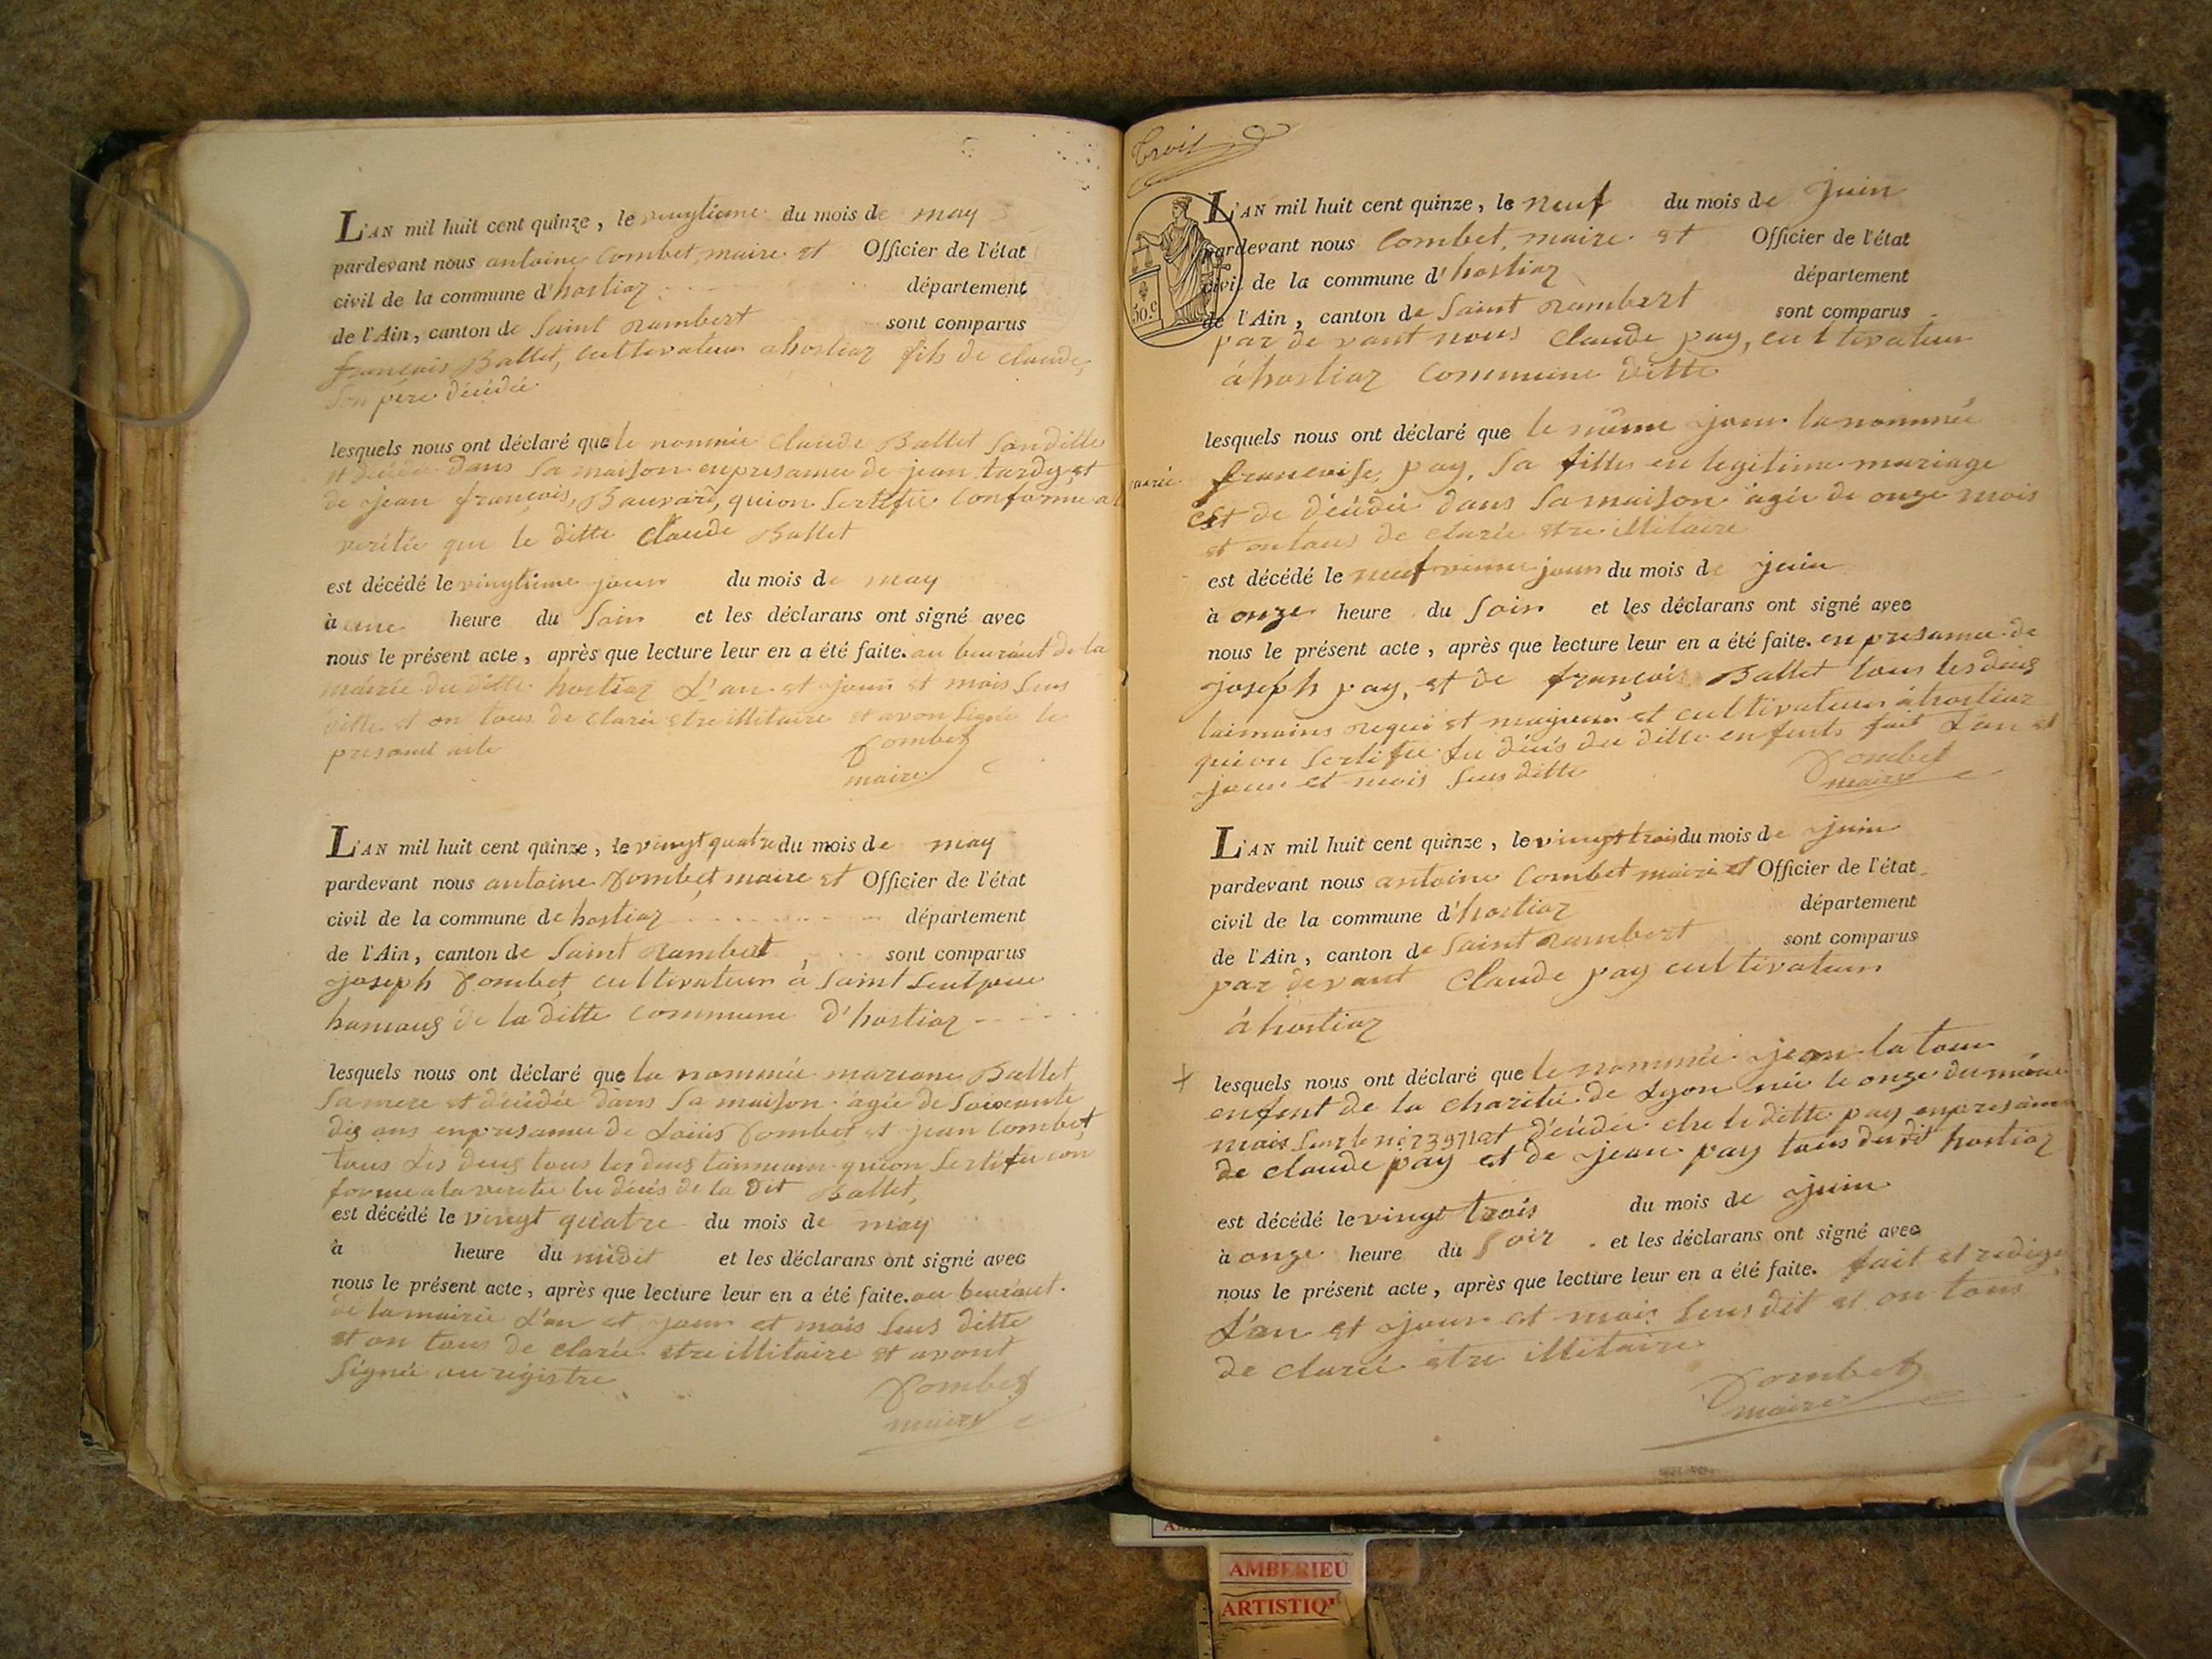 L'AN mil huit cent quinze, le vingtieme du mois de may
pardevant nous antoine Combet, maire et Officier de l'état
civil de la commune d'hostiaz département
de l'Ain, canton de Saint rambert sont comparus
françois Ballet, cultivateur a hostiaz fils de claude,
Son père décédé
lesquels nous ont déclaré que le nommée Claude Ballet
et décédé dans Sa maison enpresance de jean tardy et
de jean françois Bauvard, quion Sertifie Conforme a la
veritée que le ditte Claude Ballet
est décédé le vingtieme jour du mois de may
à une heure du Soir et les déclarans ont signé avec
nous le présent acte, après que lecture leur en a été faite. au beuraut de la
mairie du ditte hostiaz L'an et jour et mois Sus
ditte et on tous de clarée etre illitaire et avon Signée le
presant acte
Combet
maire
L'AN mil huit cent quinze, le vingt quatre du mois de may
pardevant nous antoine Combet maire et Officier de l'état
civil de la commune de hostiaz département
de l'Ain, canton de Saint Rambert, sont comparus
joseph Combet cultivateur à Saint Seulpice
hamaug de la ditte commune d'hostiaz
lesquels nous ont déclaré que la nommée mariane Ballet
Sa mere et décédée dans Sa maison agée de Soixante
dis ans enpresance de Louis Combet et jean Combet
tous les deus tous les deus taimoin quion Sertifie con
forme a la veritée le décés de la Dit Ballet,
est décédé le vingt quatre du mois de may
à heure du midit et les déclarans ont signé avec
nous le présent acte, après que lecture leur en a été faite. au beuraut
de la mairie L'an et jour et mois Sus ditte
et on tous de clarée etre illitaire et avont
Signée au régistre
Combet
maire
trois
50.C
L'AN mil huit cent quinze, le neuf du mois de juin
pardevant nous Combet, maire et Officier de l'état
civil de la commune d'hostiaz département
de l'Ain, canton de Saint rambert sont comparus
par de vant nous Claude pay, cultivateur
à hostiaz Commune ditte
lesquels nous ont déclaré que le même jour la nommée
francoise, pay, Sa fille en legitime mariage
est de décédée dans Sa maison agée de onze mois
et on tous de clarée etre illitaire
est décédé le neufvieme jour du mois de juin
à onze heure du Soir et les déclarans ont signé avec
nous le présent acte, après que lecture leur en a été faite. enpresance de
joseph pay, et de françois Ballet tous les deus
taimoins requi et mageur et cultivateur à hostiaz
quion Sertifie Lu décés du ditte enfents fait L'an et
jour et mois Sus ditte
Combet
maire
L'AN mil huit cent quinze, le vingt trois du mois de juin
pardevant nous antoine Combet maire et Officier de l'état
civil de la commune d'hostiaz département
de l'Ain, canton de Saint rambert sont comparus
par devant Claude pay cultivateur
à hostiaz
lesquels nous ont déclaré que le nommée jean la tour
enfent de la charitée de Lyon née le onze du même
mois Sous le nº 23971 et décédée che le ditte pay enpresance
de claude pay et de jean pay tous du dit hostiaz
est décédé le vingt trois du mois de juin
à onze heure du Soir et les déclarans ont signé avec
nous le présent acte, après que lecture leur en a été faite. fait et redigé
L'an et jour et mois Sus dit et on tous
de clarée etre illitaire
Combet
maire
AMBERIEU
ARTISTIQ